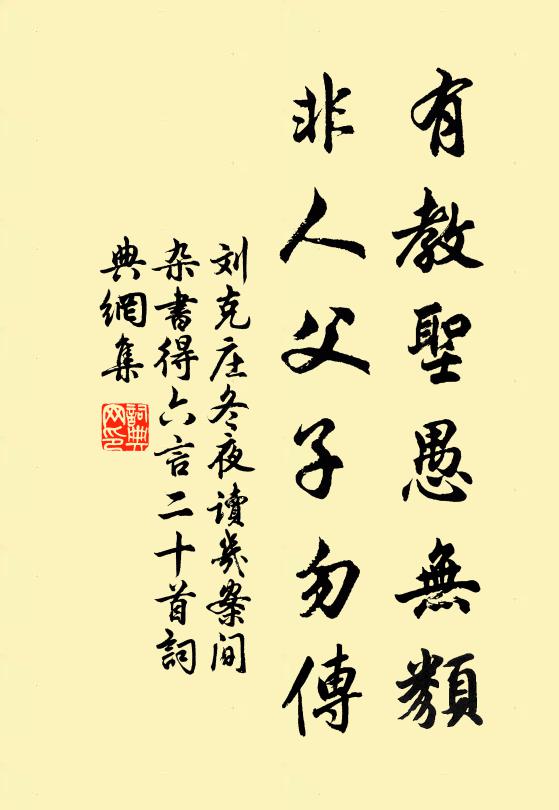 有教聖愚無類
非人父子勿傳
刘克庄冬夜讀几案间
杂書得六言二十首詞
典網集
詞典网印